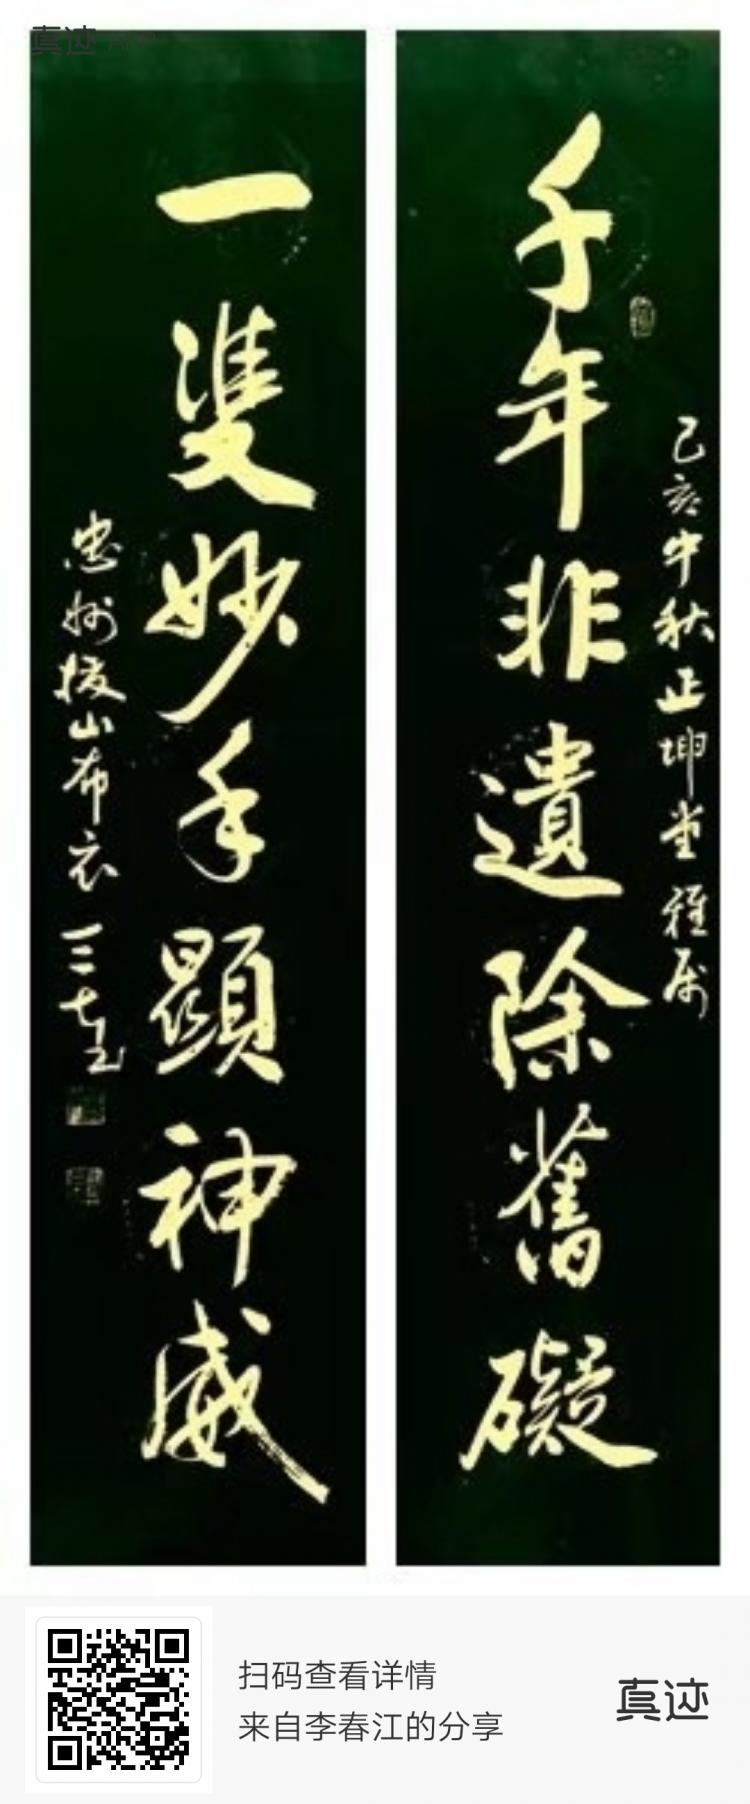 真迹
己亥中秋正坤堂雅属
千年非遺除舊礙
一雙妙手顯神威
忠州拔山布衣
扫码查看详情
来自李春江的分享
真迹